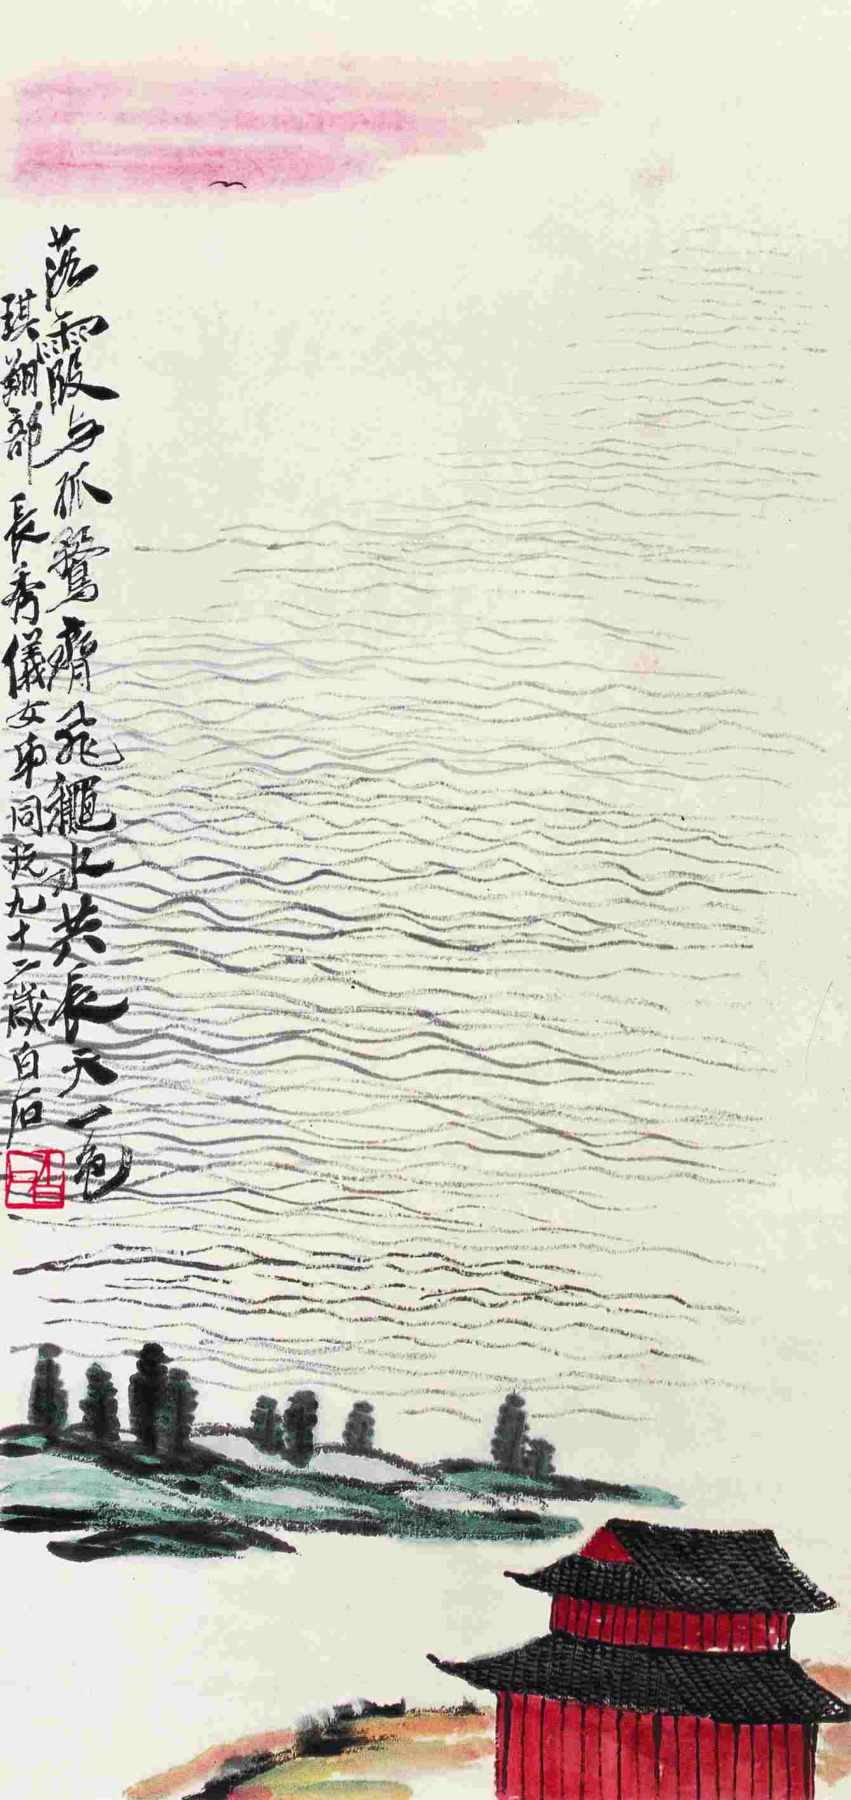 落霞与孤鶩齊飛龝水共長天一色
琪翔部長秀儀女弟同玩九十二歲白石